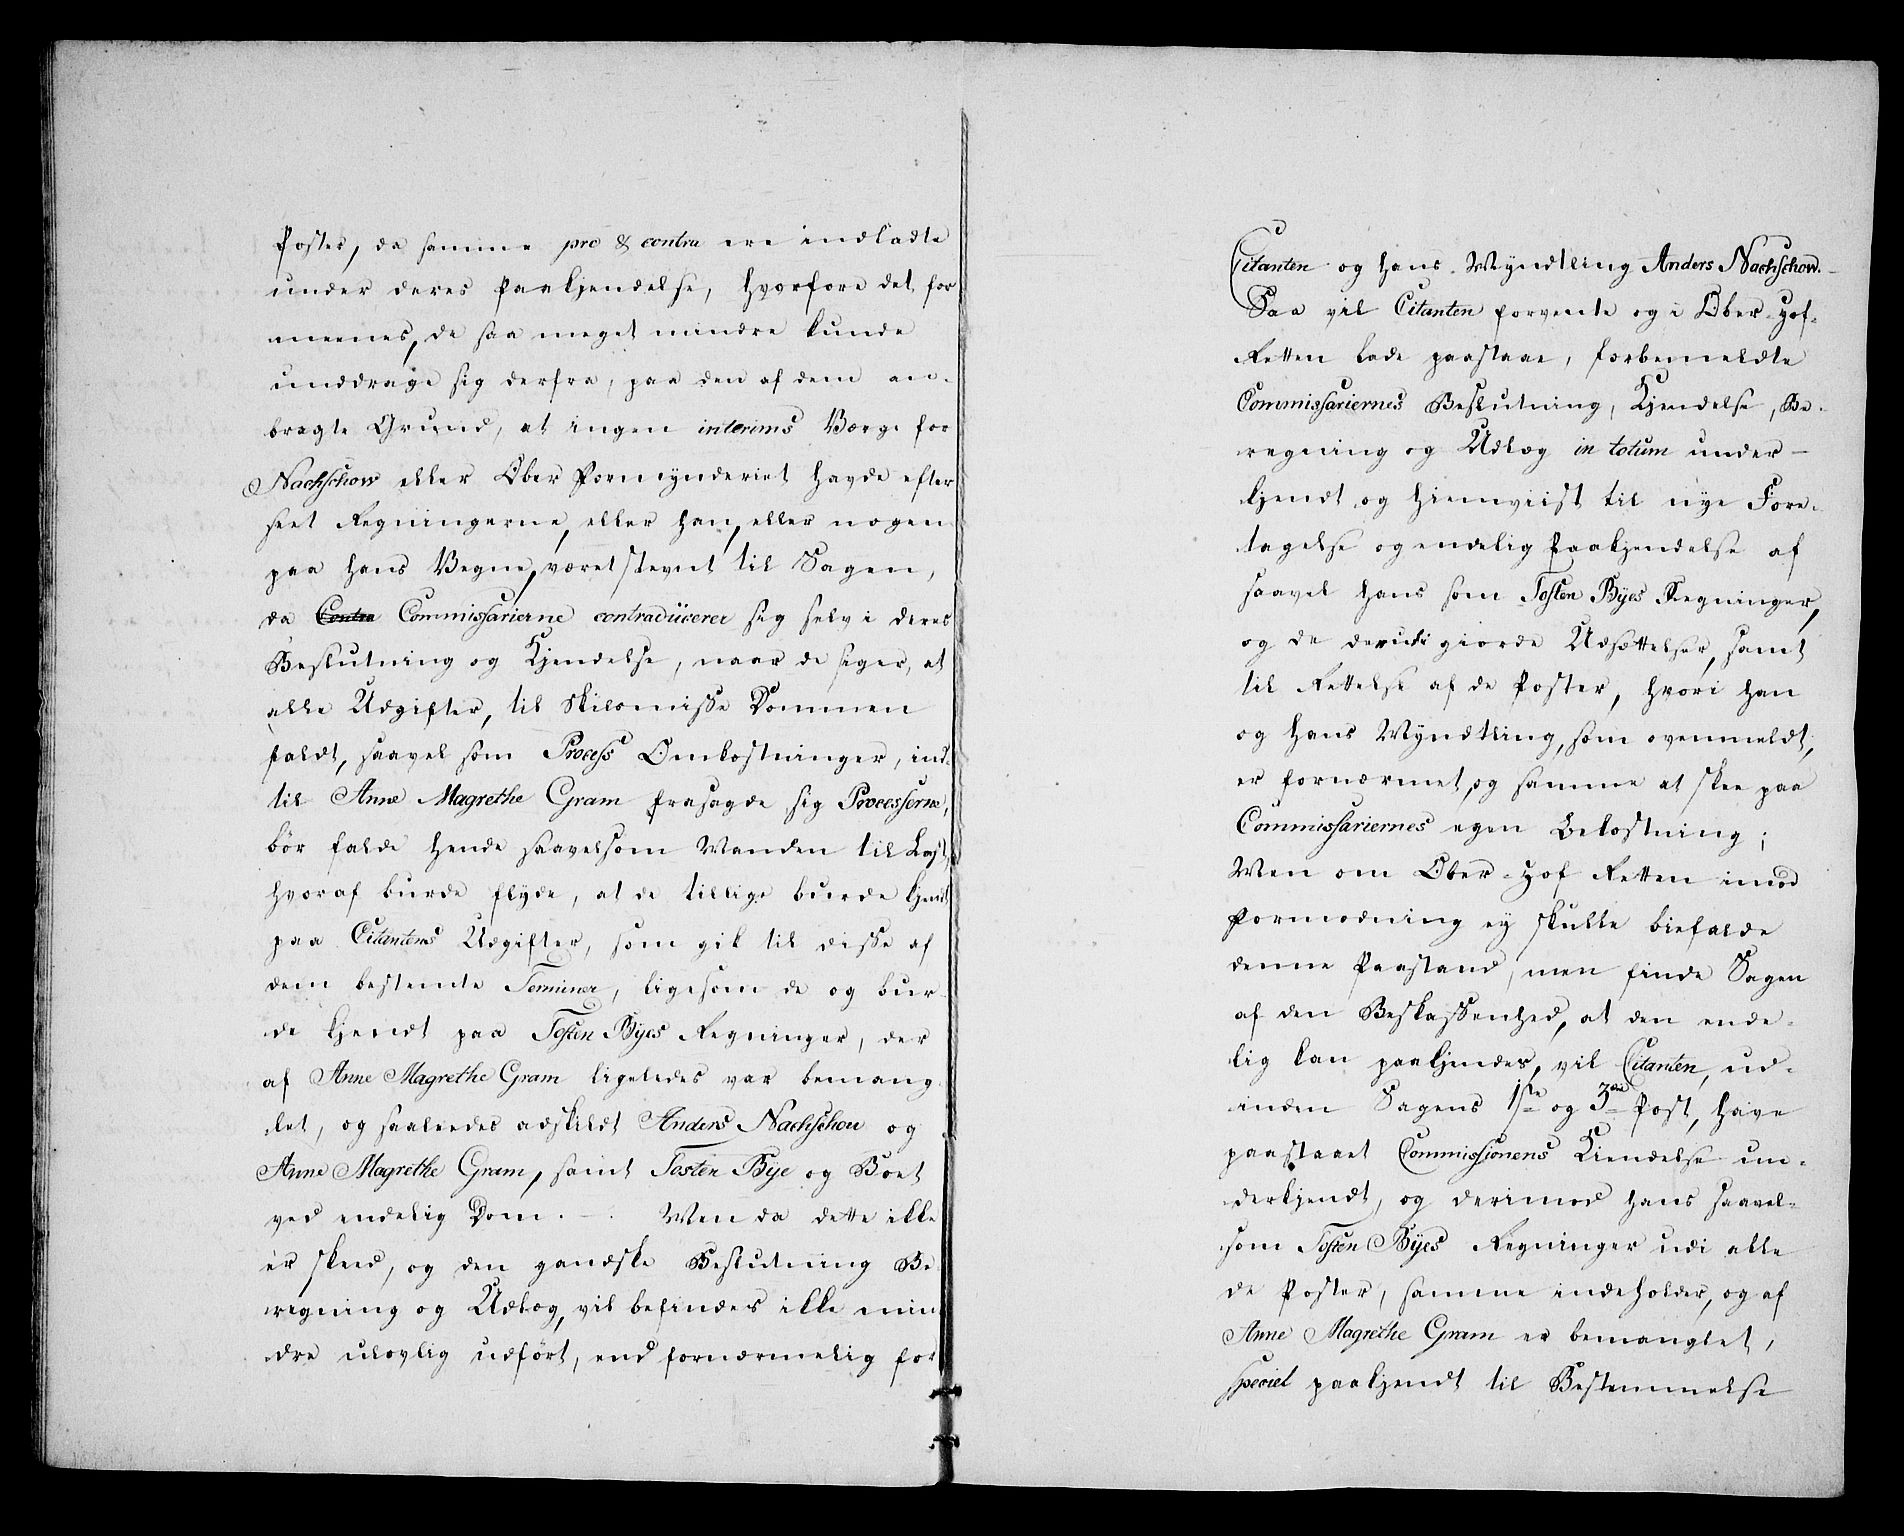 Poster, da samme pro & contra ere indladte
under deres Paakjendelse, hvorfore det for
meenes, de saa meget mindre kunde
unddrage sig derfra, paa den af dem an-
bragte Grund, at ingen interims Værge for
Nachschow eller Ober Formynderiet havde efter
seet Regningerne, eller han, eller nogen
paa hans Vegne, været stevnt til Sagen,
da Contra Commissarierne contradicerer sig selv i deres
Beslutning og Kjendelse, naar de siger, at
alle Udgifter, til Skilsmisse Dommen
faldt, saavel som Process Omkostninger, ind-
til Anne Magrethe Gram frasagde sig Processerne,
bör falde hende saavelsom Manden til Last,
hvoraf burde flyde, at de tillige burde kjendt
paa Citantens Udgifter, som gik til disse af
dem bestemte Terminer, ligesom de og bur-
de kjendt paa Tosten Byes Regninger, der
af Anne Magrethe Gram ligeledes var bemang
let, og saaledes adskildt Anders Nachschow og
Anne Magrethe Gram, samt Tosten Bye og Boet
ved endelig Dom. — Men da dette ikke
er skeed, og den gandske Beslutning Be
regning og Udlæg, vil befindes ikke min
dre ulovlig udfört, end fornærmelig for
Citanten og hans Myndtling Anders Nachschow. —
Saa vil Citanten forvente og i Ober-Hof-
Retten lade paastaae, forbemeldte
Commissariernes Beslutning, Kjendelse, Be-
regning og Udlæg in totum under-
kjendt og hiemviist til nye Fore-
tagelse og endelig Paakjendelse af
saavel hans som Tosten Byes Regninger,
og de derudi giorde Udsættelser, samt
til Rettelse af de Poster, hvori han
og hans Myndtling, som ovenmeldt,
er fornærmet, og samme at skee paa
Commissariernes egen Bekostning;
Men om Ober-Hof Retten imod
Formodning ey skulle biefalde
denne Paastand, men finde Sagen
af den Beskaffenhed, at den ende-
lig kan paakjendes, vil Citanten, ud-
inden Sagens 1ste og 3die Post, have
paastaaet Commissionens Kiendelse un-
derkjendt, og derimod hans saavel-
som Tosten Byes Regninger udi alle
de Poster, samme indeholder, og af
Anne Magrethe Gram er bemanglet,
speciel paakjendt til Bestemmelse